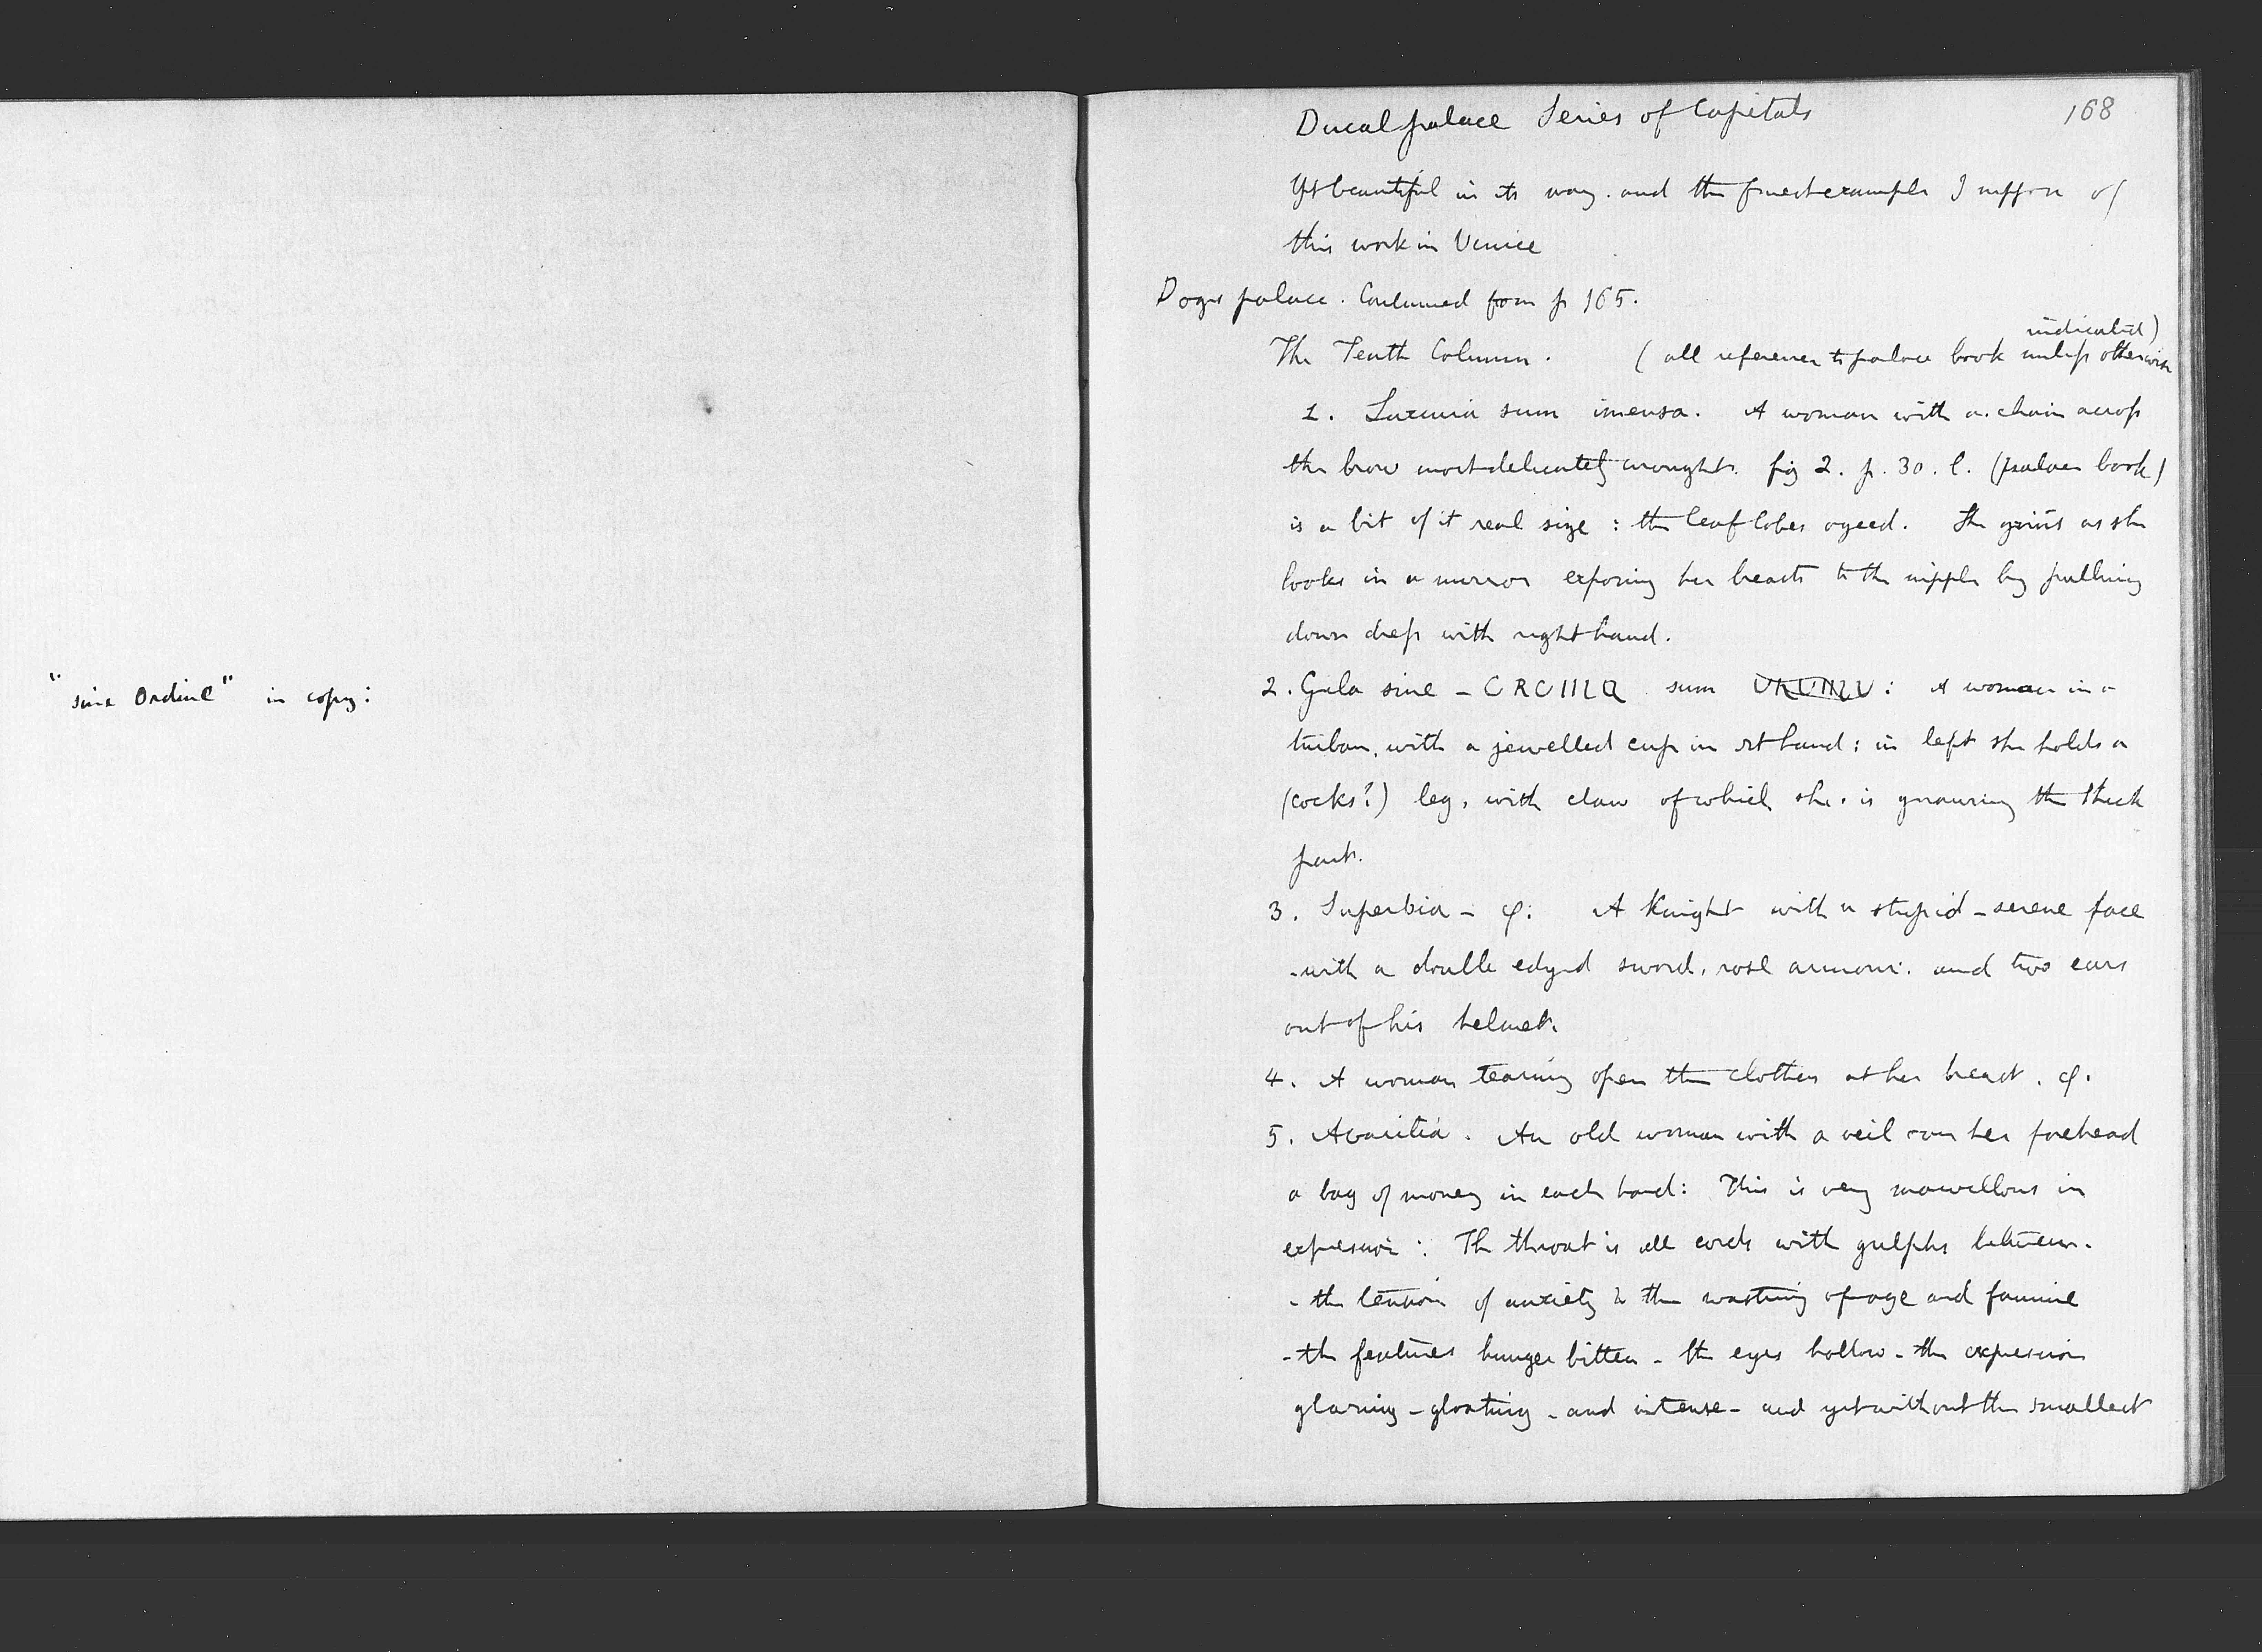 "sine Ordine" in copy:
Ducal palace Series of Capitals 168
Yet beautiful in its way. and the finest example I suppose of
this work in Venice
Doges palace. Continued from p 165.
The Tenth Column. (all references to palace book unless otherwise
indicated)
1. Luxuria sum imensa. A woman with a chain across
the brow most delicately wrought. fig 2. p. 30. l. (palace book)
is a bit of it real size : the leaf lobes ogeed. She grins as she
looks in a mirror exposing her breasts to the nipple by pulling
down dress with right hand.
2. Gula sine - sum : A woman in a
turban, with a jewelled cup in rt hand; in left she holds a
(cocks?) leg, with claw of which she is gnawing the thick
part.
3. Superbia - A Knight with a stupid - serene face
- with a double edged sword, rose armour. and two ears
out of his helmet.
4. A woman tearing open the clothes at her breast.
5. Avaritia. An old woman with a veil over her forehead
a bag of money in each hand: This is very marvellous in
expression : The throat is all cords with gulphs between.
- the tension of anxiety & the wasting of age and famine
- the features hunger bitten - the eyes hollow - the expression
glaring - gloating - and intense - and yet without the smallest